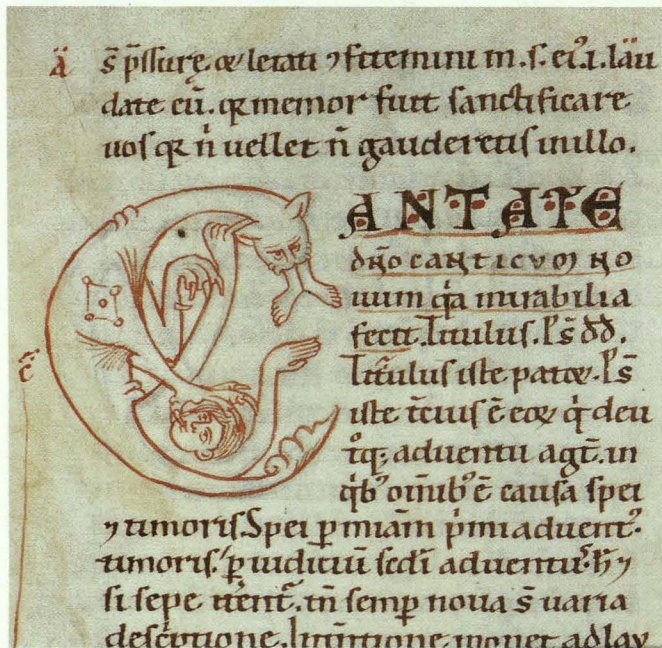 s̄ p̄ssurę. & letati ⁊ fitemini m. s. ei.⁊. lau
date eū. q̄ memor fuit sanctificare
uos q̄ n̄ uellet n̄ gauderetis in illo.
CANTATE
dño canticum no
uum q̄a mirabilia
fecit. Titulus. P̄s dd̄.
Titulus iste patet. P̄s
iste t̄cius ē eoꝝ q̄ de
adventu agt̄. in
q̄b' omīb' ē causa spei
⁊ timoris. Spei ꝑ miam p̄mi aduent'.
timoris. ꝑ iudiciū sed̄i aduentus. h̄ ⁊
si sepe tient. tn̄ semp noua s̄ uaria
monet ad lau